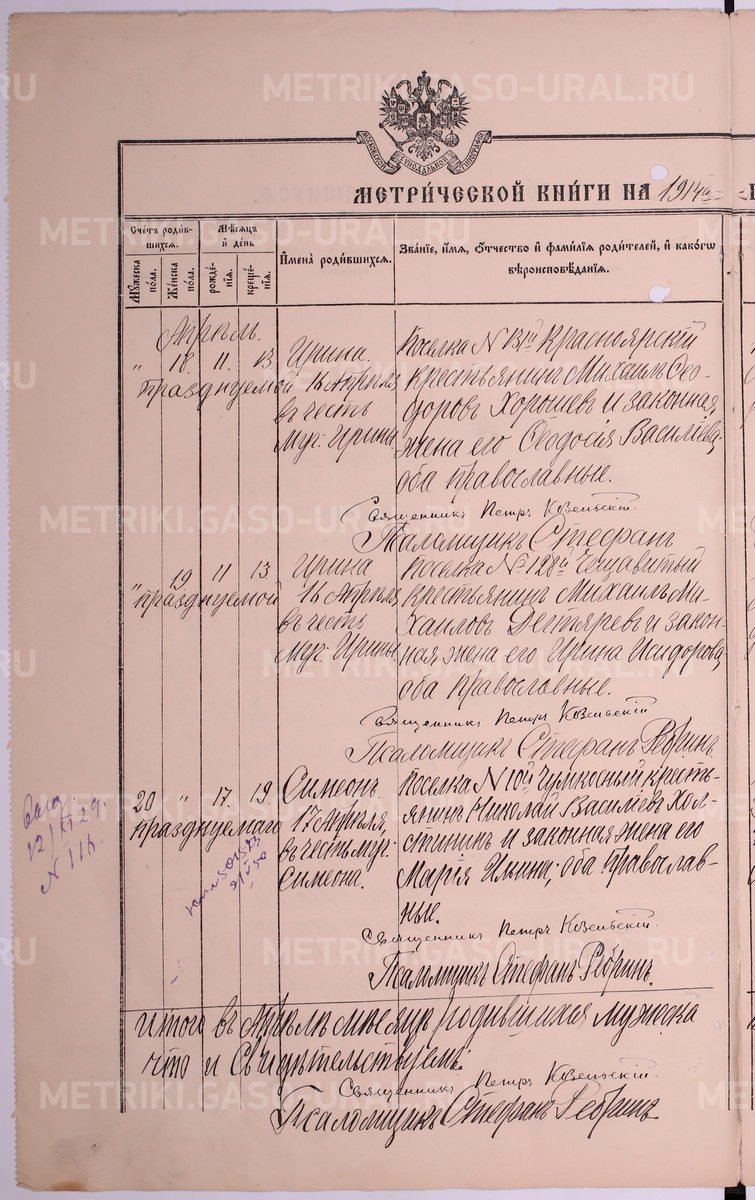 МОСКОВСКОЙ СѴНОДАЛЬНОЙ ТИПОГРАФІИ
МЕТРИ́ЧЕСКОЙ КНИ́ГИ НА 1914й
Сче́тъ роди́в-
шихся.
Мѣ́сяцъ
и҆ де́нь
Му́жеска
по́ла.
Же́нска
по́ла.
рожде́-
нія.
креще́-
нія.
И҆мена̀ роди́вшихся.
Зва́ніе, и҆́мя, ѻ҆́тчество и҆ фами́лія роди́телей, и҆ како́гѡ
вѣроисповѣ́данія.
Апрѣль.
" 18. 11. 13. Ирина.
празднуемой 16 Апрѣля
въ честь
Муч: Ирины.
Поселка N 131й Красноярскій
крестьянинъ Михаилъ Ѳео-
доровъ Хорошевъ и законная
жена его Ѳеодосія Васильева,
оба православные.
Священникъ Петръ Козельскій.
Псаломщикъ Стефанъ
" 19 11 13 Ирина
празднуемой 16 Апрѣля
въ честь
Муч: Ирины.
Поселка N 128й
крестьянинъ Михаилъ Ми-
хаиловъ Дегтяревъ и закон-
ная жена его Ирина Исидорова,
оба православные.
Священникъ Петръ Козельскій
Псаломщикъ Стефанъ Ребринъ.
20 " 17. 19. Симеонъ.
празднуемаго 17 Апрѣля,
въ честь муч:
Симеона.
Поселка N 10й кресть-
янинъ Николай Васильевъ Хол-
стининъ и законная жена его
Марія Ильина; оба православ-
ные.
Священникъ Петръ Козельскій.
Псаломщикъ Стефанъ Ребринъ.
12/XI 29.
N 116.
Итого въ Апрѣлѣ мѣсяцѣ родившихся мужеска
что и свидѣтельствуемъ:
Священникъ Петръ Козельскій.
Псаломщикъ Стефанъ Ребринъ
METRIKI.GASO-URAL.RU